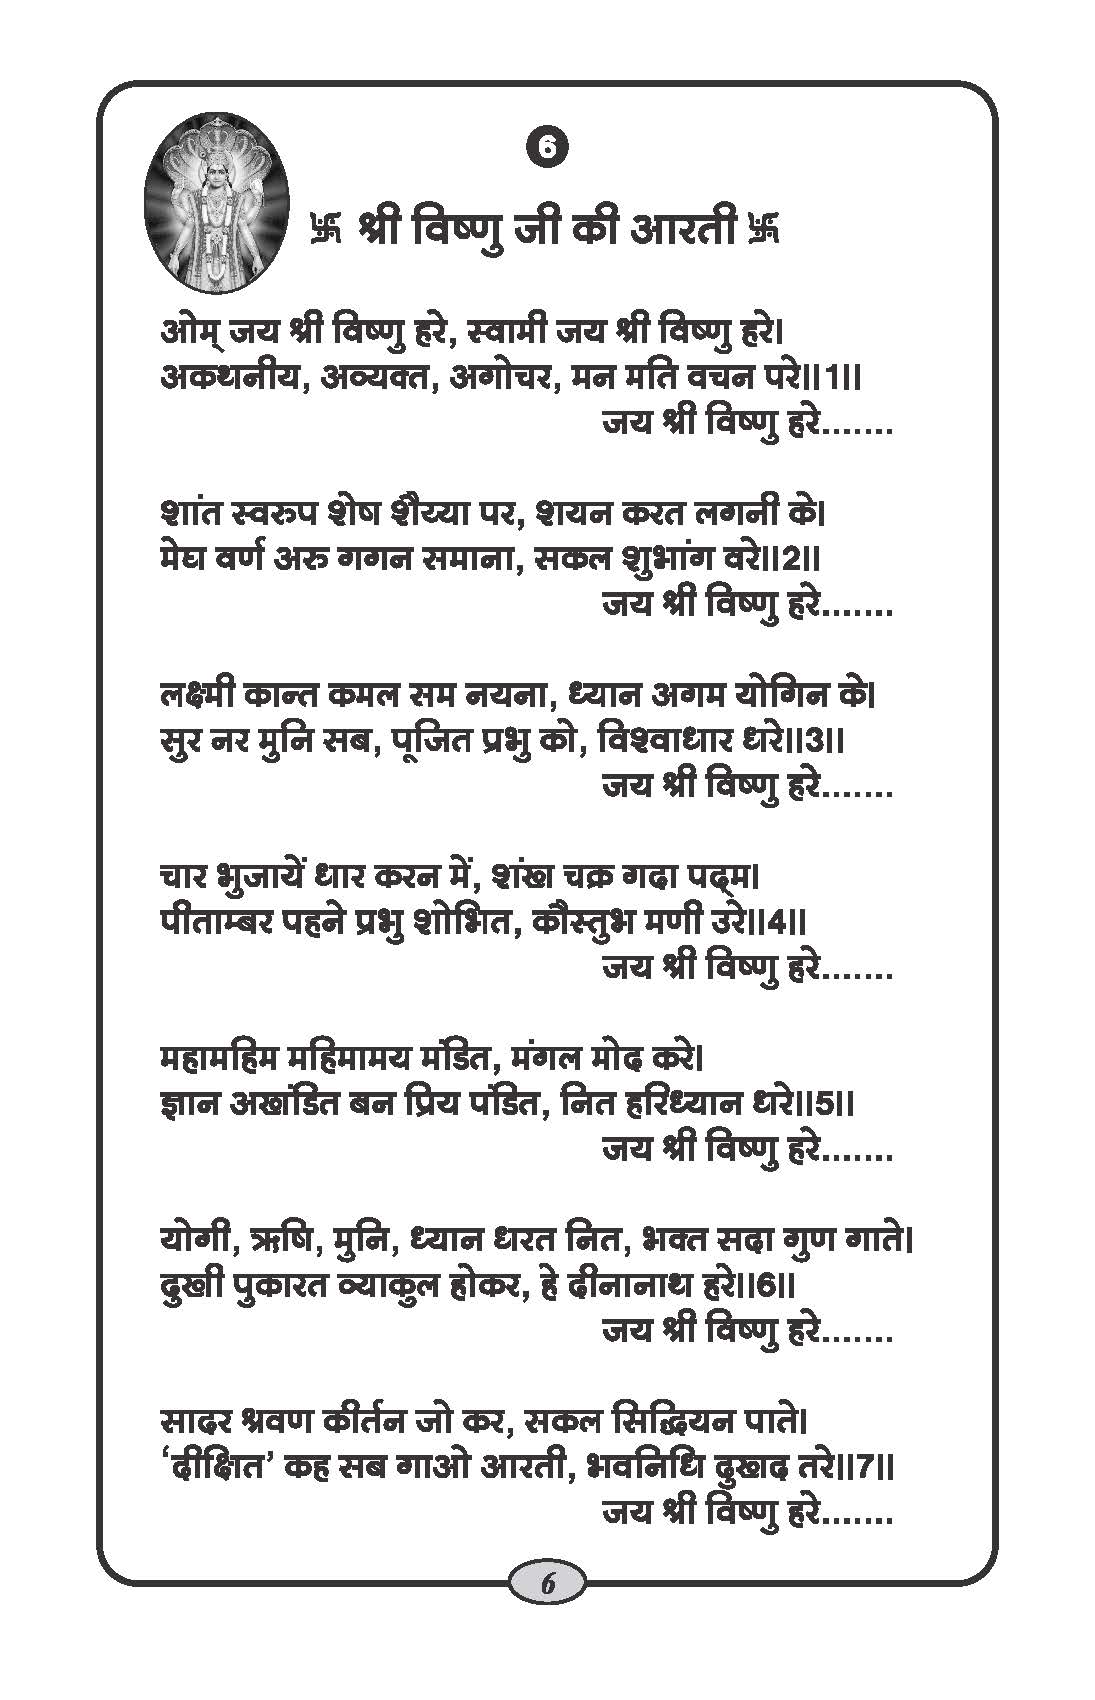 6
卐 श्री विष्णु जी की आरती 卐
ओम् जय श्री विष्णु हरे, स्वामी जय श्री विष्णु हरे।
अकथनीय, अव्यक्त, अगोचर, मन मति वचन परे॥1॥
जय श्री विष्णु हरे.......
शांत स्वरुप शेष शैय्या पर, शयन करत लगनी के।
मेघ वर्ण अरु गगन समाना, सकल शुभांग वरे॥2॥
जय श्री विष्णु हरे.......
लक्ष्मी कान्त कमल सम नयना, ध्यान अगम योगिन के।
सुर नर मुनि सब, पूजित प्रभु को, विश्वाधार धरे॥3॥
जय श्री विष्णु हरे.......
चार भुजायें धार करन में, शंख चक्र गदा पद्म।
पीताम्बर पहने प्रभु शोभित, कौस्तुभ मणी उरे॥4॥
जय श्री विष्णु हरे.......
महामहिम महिमामय मंडित, मंगल मोद करे।
ज्ञान अखंडित बन प्रिय पंडित, नित हरिध्यान धरे॥5॥
जय श्री विष्णु हरे.......
योगी, ऋषि, मुनि, ध्यान धरत नित, भक्त सदा गुण गाते।
दुखी पुकारत व्याकुल होकर, हे दीनानाथ हरे॥6॥
जय श्री विष्णु हरे.......
सादर श्रवण कीर्तन जो कर, सकल सिद्धियन पाते।
‘दीक्षित’ कह सब गाओ आरती, भवनिधि दुखद तरे॥7॥
जय श्री विष्णु हरे.......
6